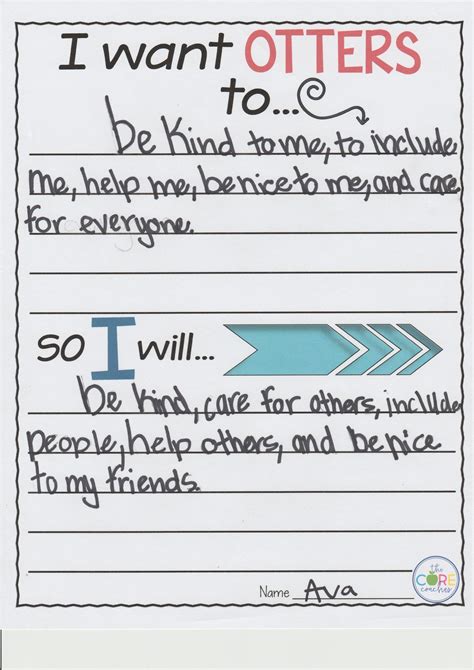 I want OTTERS
to...
be kind to me, to include
me, help me, be nice to me, and care
for everyone.
SO I will...
be kind, care for others, include
people, help others, and be nice
to my friends.
Name Ava
the
CORE
coaches